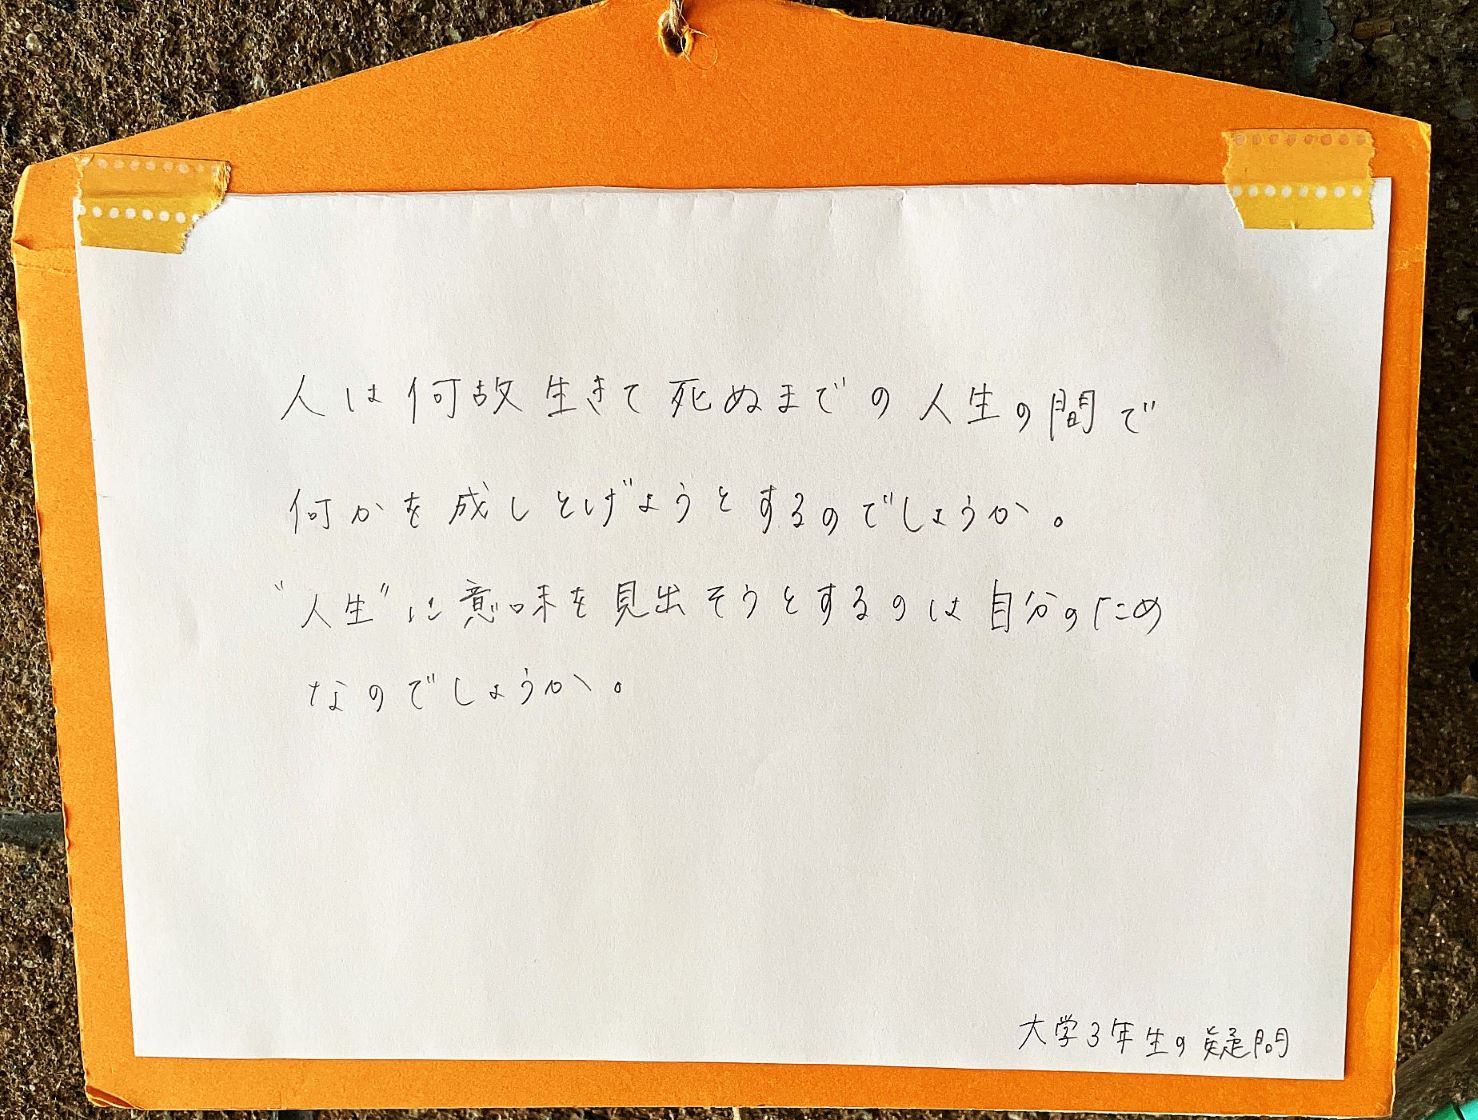 人は何故生きて死ぬまでの人生の間で
何かを成しとげようとするのでしょうか。
"人生"に意味を見出そうとするのは自分のため
なのでしょうか。
大学3年生の疑問